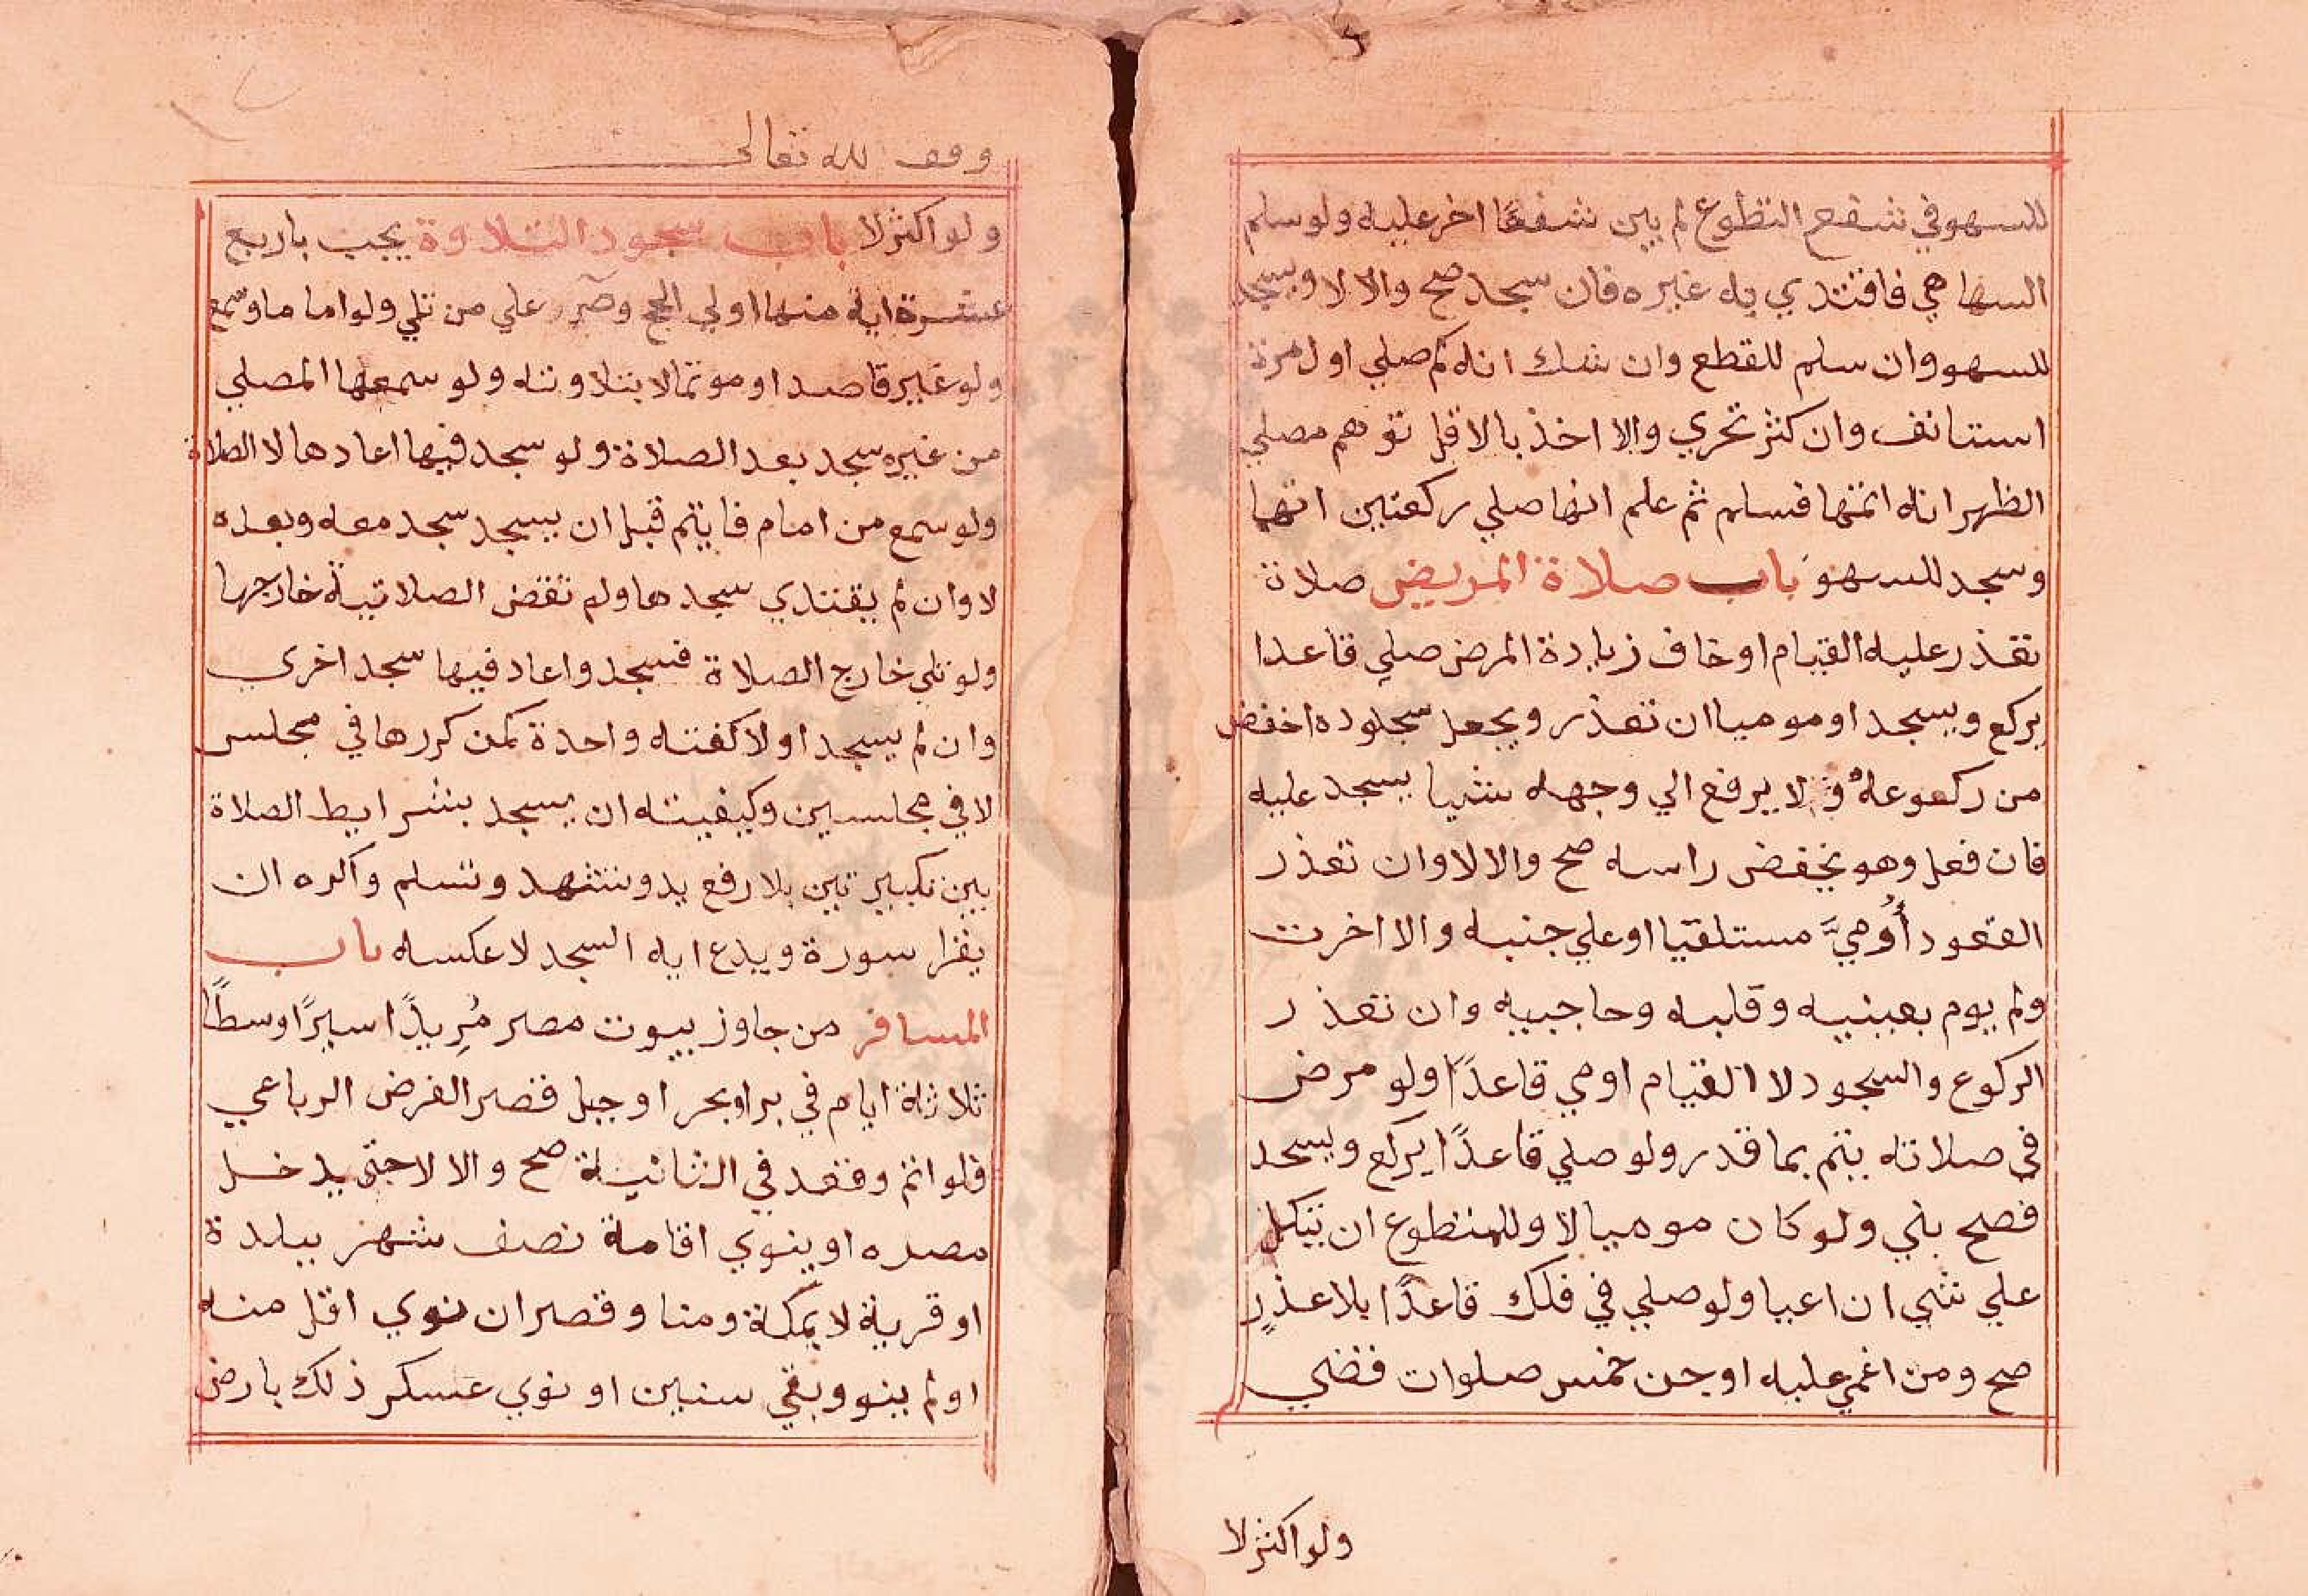 للسهو في شفع التطوع لم يبن شفعًا اخر عليه ولو سلم
الساهي فاقتدي به غيره فان سجد صح والا لا ويسجد
للسهو وان سلم للقطع وان شك انه كم صلي اول مرة
استانف وان كثر تحري والا اخذ بالاقل توهم مصلي
الظهر انه اتمها فسلم ثم علم انها صلي ركعتين اتمها
وسجد للسهو باب صلاة المريض صلاة
تعذر عليه القيام او خاف زيادة المرض صلي قاعدا
يركع ويسجد او موميا ان تعذر ويجعل سجوده اخفض
من ركعوعه و لا يرفع الي وجهه شيا يسجد عليه
فان فعل وهو يخفض راسه صح والا لا وان تعذر
القعود أُوميَّ مستلقيا او علي جنبه والا اخرت
ولم يوم بعينيه وقلبه وحاجبيه وان تعذر
الركوع والسجود لا القيام اومي قاعدًا ولو مرض
في صلاته يتم بما قدر ولو صلي قاعدًا يركع ويسجد
فصح بني ولو كان موميا لا وللمتطوع ان يتكل
علي شي ان اعيا ولو صلي في فلك قاعدًا بلا عذرٍ
صح ومن اغمي عليه او جن خمس صلوات قضي
ولو اكثر لا
وقف لله تعالى
ولو اكثر لا باب سجود التلاوة يجب باربع
عشرة ايه منها اولي الحج وصٓ علي من تلي ولو اماما وسمع
ولو غير قاصد او موتما لا بتلاوته ولو سمعها المصلي
من غيره سجد بعد الصلاة ولو سجد فيها اعادها لا الصلاة
ولو سمع من امام فايتم قبل ان يسجد سجد معه وبعده
لا وان لم يقتدي سجدها ولم تقض الصلاتية خارجها
ولو تلي خارج الصلاة فسجد واعاد فيها سجد اخري
وان لم يسجد اولا كفته واحدة كمن كررها في مجلس
لا في مجلسين وكيفيته ان يسجد بشرايط الصلاة
بين تكبيرتين بلا رفع يد وتشهد وتسلم وكره ان
يقرا سورة ويدع ايه السجد لا عكسه باب
المسافر من جاوز بيوت مصر مُرِيدًا سيرًا وسطًا
ثلاثة ايام في بر او بحر او جبل قصر الفرض الرباعي
فلو اتم وقعد في الثانية صح والا لا حتي يدخل
مصره او ينوي اقامة نصف شهر ببلدة
او قرية لا بمكة ومنا وقصر ان نوي اقل منه
او لم ينو وبقي سنين او نوي عسكر ذلك بارض